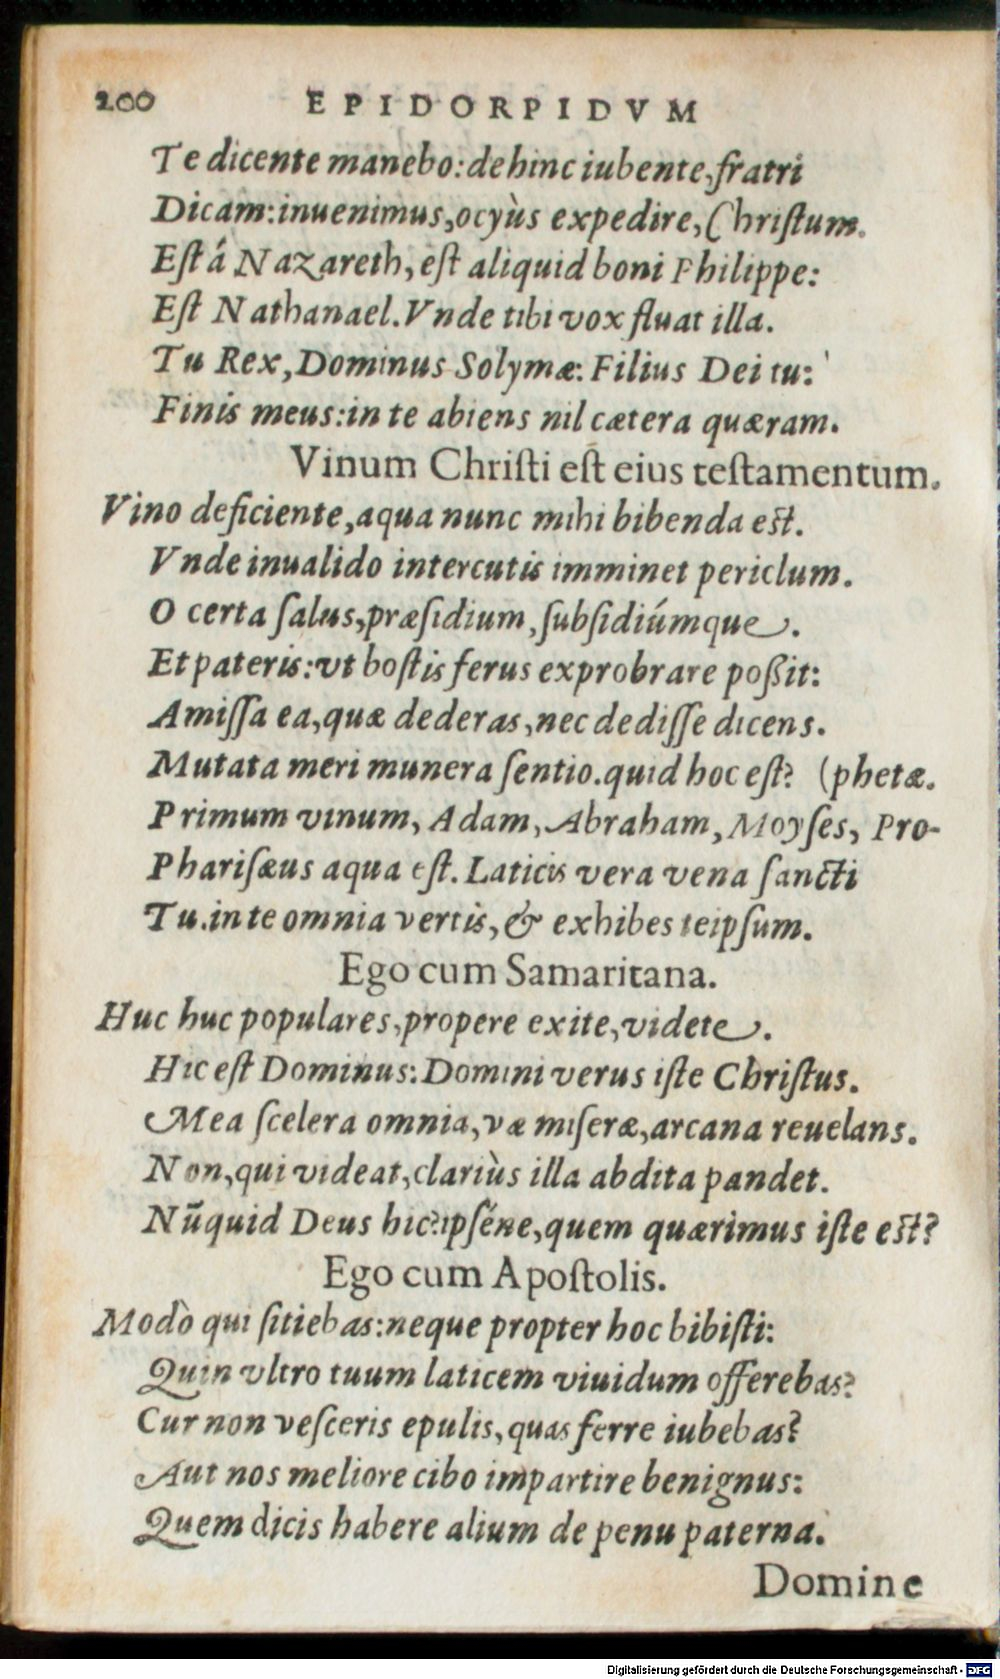 200 EPIDORPIDVM
Te dicente manebo: dehinc iubente, fratri
Dicam: inuenimus, ocyùs expedire, Christum.
Est á Nazareth, est aliquid boni Philippe:
Est Nathanael. Vnde tibi vox fluat illa.
Tu Rex, Dominus Solymæ: Filius Dei tu:
Finis meus: in te abiens nil cætera quæram.
Vinum Christi est eius testamentum.
Vino deficiente, aqua nunc mihi bibenda est.
Vnde inualido intercutis imminet periclum.
O certa salus, præsidium, subsidiúmque.
Et pateris: vt hostis ferus exprobrare poßit:
Amissa ea, quæ dederas, nec dedisse dicens.
Mutata meri munera sentio. quid hoc est? (phetæ.
Primum vinum, Adam, Abraham, Moyses, Pro-
Pharisæus aqua est. Laticis vera vena sancti
Tu. in te omnia vertis, & exhibes teipsum.
Ego cum Samaritana.
Huc huc populares, propere exite, videte.
Hic est Dominus: Domini verus iste Christus.
Mea scelera omnia, væ miseræ, arcana reuelans.
Non, qui videat, clariùs illa abdita pandet.
Nūquid Deus hic? ipséne, quem quærimus iste est?
Ego cum Apostolis.
Modò qui sitiebas: neque propter hoc bibisti:
Quin vltro tuum laticem viuidum offerebas?
Cur non vesceris epulis, quas ferre iubebas?
Aut nos meliore cibo impartire benignus:
Quem dicis habere alium de penu paterna.
Domine
Digitalisierung gefördert durch die Deutsche Forschungsgemeinschaft - DFG